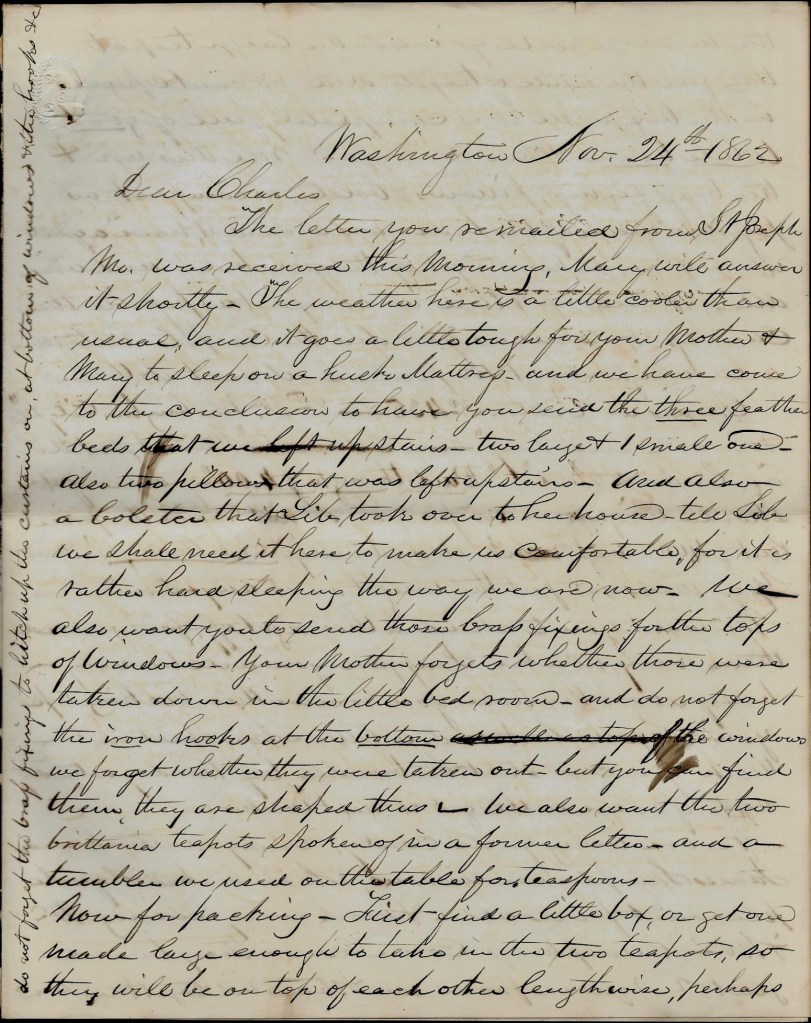 Washington Nov. 24th 1862
Dear Charles
The letter you remailed from St Joseph
Mo. was received this morning, Mary will answer
it shortly - The weather here is a little cooler than
usual, and it goes a little tough for your Mother &
Mary to sleep on a husk Mattress - and we have come
to the conclusion to have you send the three feather
beds that we left up stairs - two large & 1 small one -
also two pillows that was left upstairs - and also
a bolster that Lib took over to her house - tell Lib
we shall need it here to make us comfortable, for it is
rather hard sleeping the way we are now - We
also want you to send those brass fixings for the tops
of windows - Your Mother forgets whether those were
taken down in the little bed room - and do not forget
the iron hooks at the bottom as well as top of the windows
we forget whether they were taken out - but you can find
them, they are shaped thus - We also want the two
brittania teapots spoken of in a former letter - and a
tumbler we used on the table for teaspoons -
Now for packing - First find a little box, or get one
made large enough to take in the two teapots, so
they will be on top of each other lengthwise, perhaps
do not forget the brass fixings to hitch up the curtains on, at bottom of windows & the hooks &c